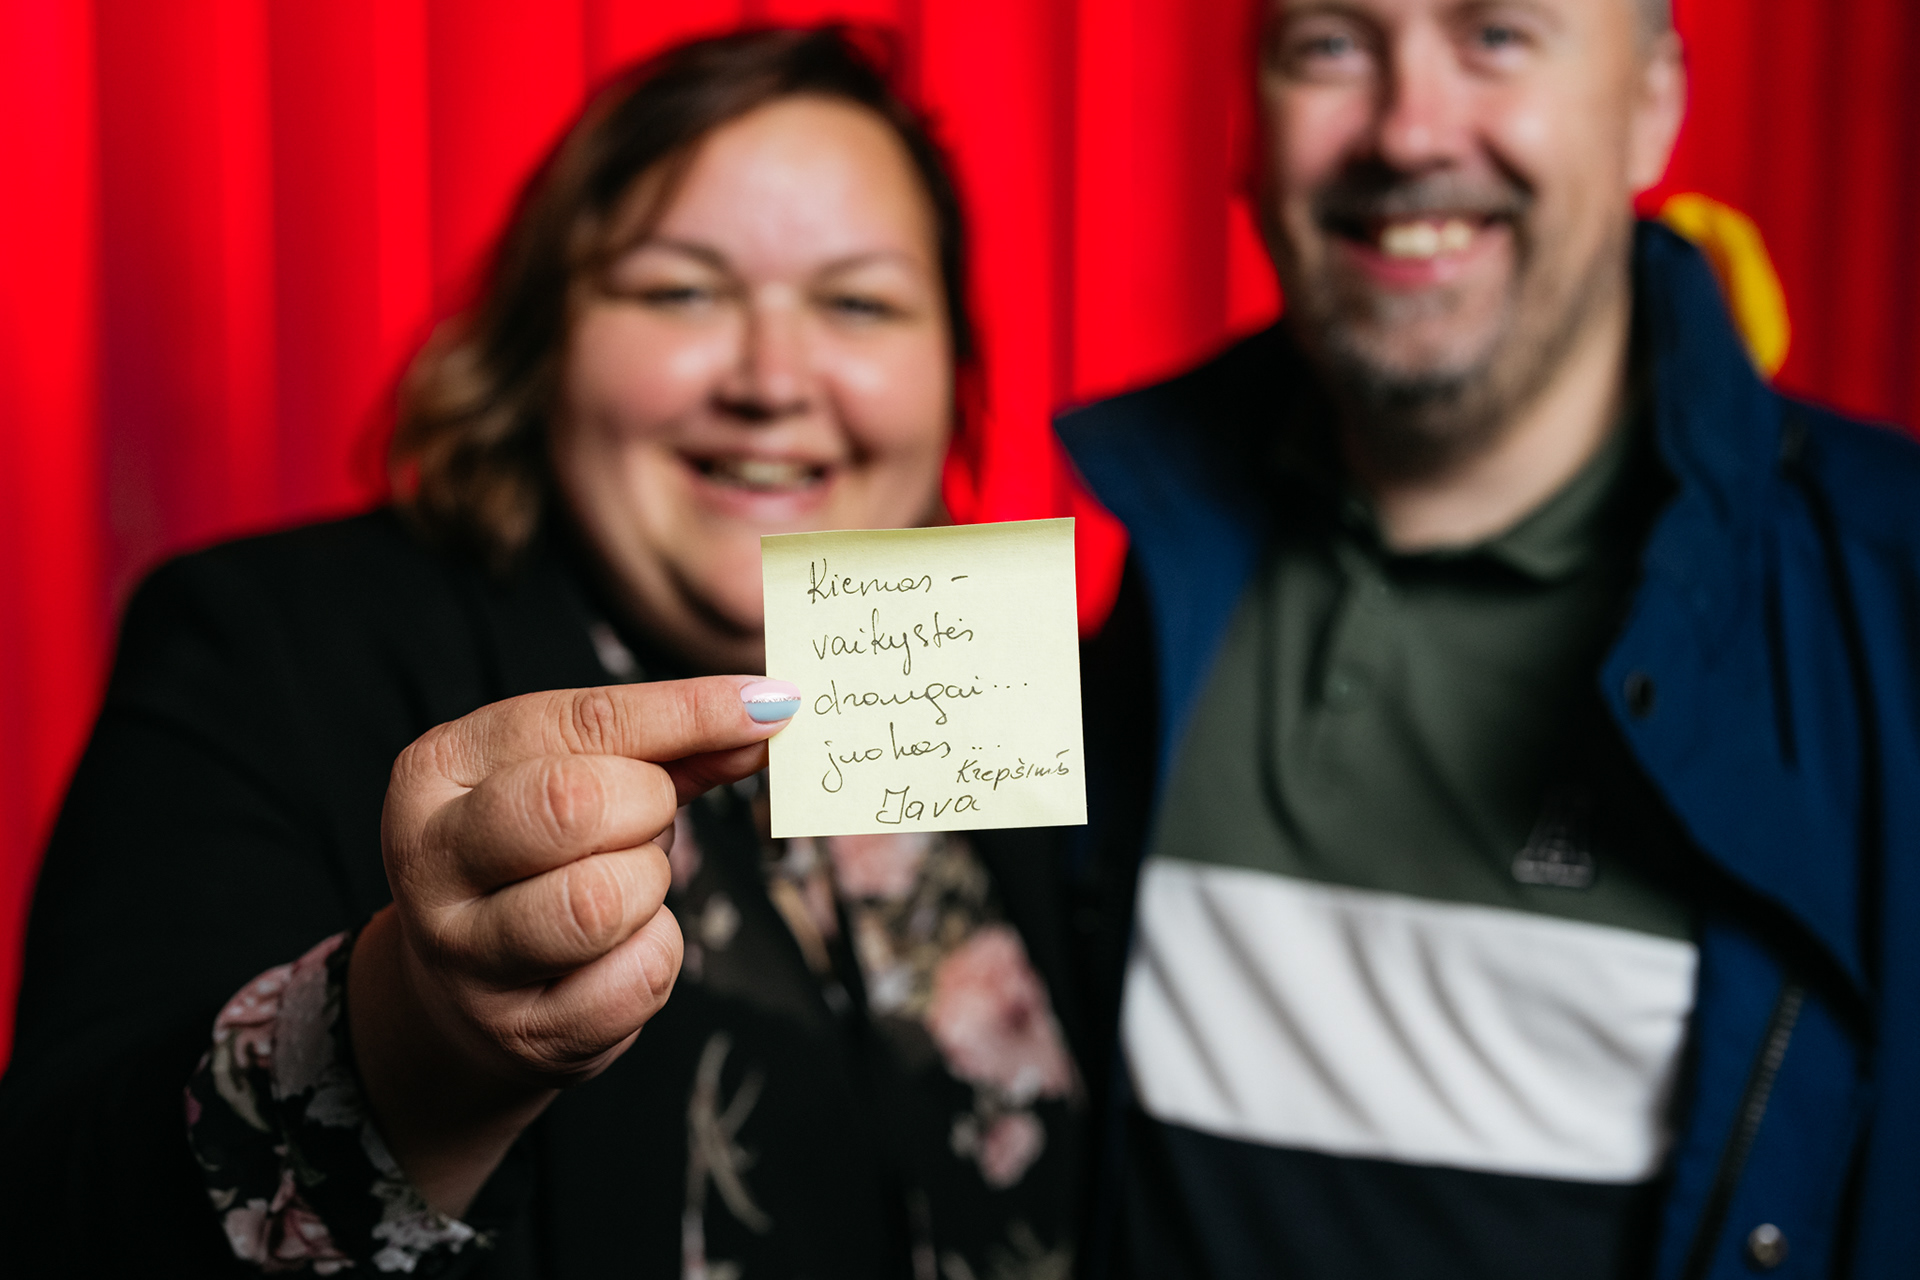 Kiemas -
vaikystės
draugai...
juokas...
Krepšinis
Java